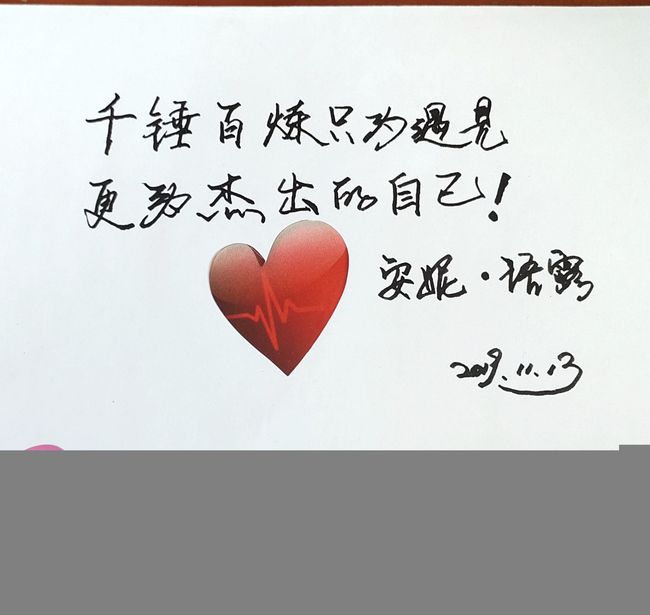 千锤百炼只为遇见
更为杰出的自己！
安妮·语露
2019.11.13